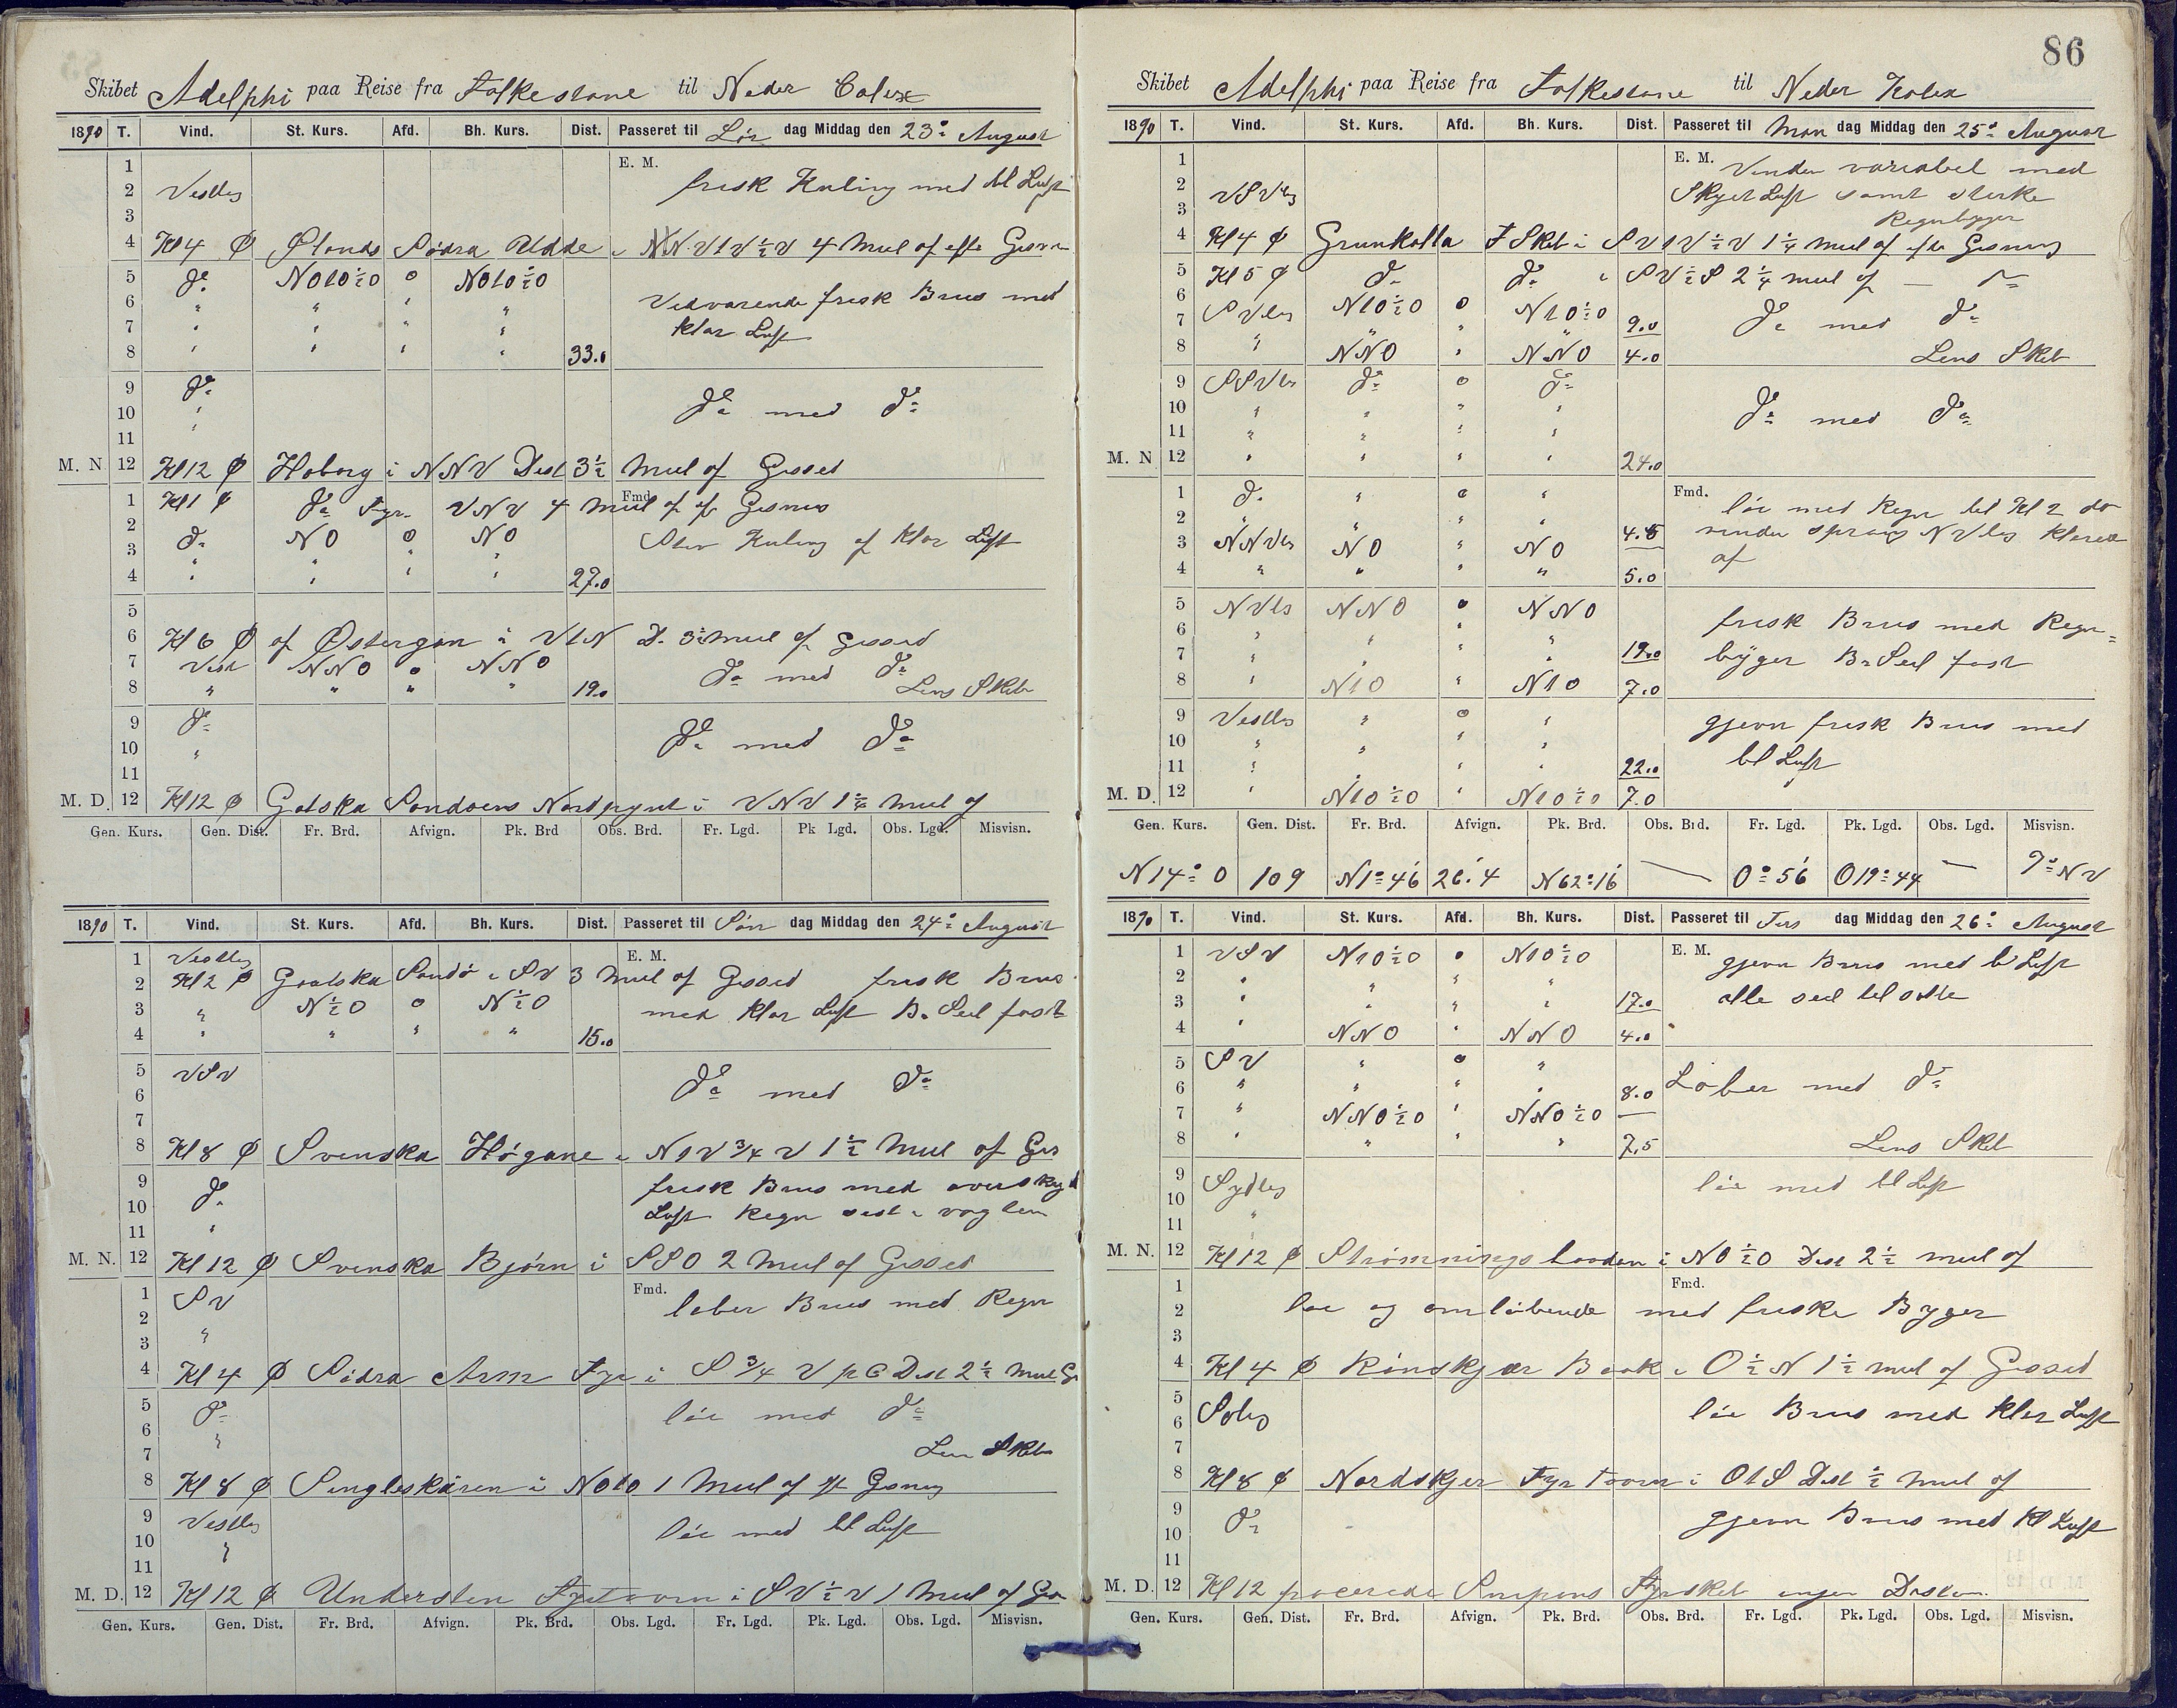 Skibet Adelphi paa Reise fra Folkestone til Neder Calix
1890 T. Vind. St. Kurs. Afd. Bh. Kurs. Dist. Passeret til Lør dag Middag den 23de August
1 E. M.
2 Vestlig frisk Kuling med bl Luft
3
4 Kl 4 Φ Ølands Södra Udde i 4 Mul af efter Gisning
5 do NOtO½O 0 NOtO½O
6 " " " " Vedvarende frisk Brus med
7 " " " " klar Luft
8 " " " " 33.0
9 do
10 " do med do
11 "
M. N 12 Kl 12 Φ Hoborg i NNV Dist 3½ Mul af Gisset
1 Kl 1 Φ do Fyr VNV 4 Mul af Fmd.
2 do NO 0 NO
3 " " " " Stiv Kuling af klar Luft
4 " " " " 27.0
5
6 Kl 6 Φ af Østergan i VtN D. 3½ Mul af Gisset
7 Vest NNO 0 NNO do med do
8 " " " " 19.0 Lens Skib
9 do
10 " do med do
11
M. D. 12 Kl 12 Φ Gotska Sandoens Nordpynt i VNV 1¼ Mul af
Gen. Kurs. Gen. Dist. Fr. Brd. Afvign. Pk. Brd Obs. Brd. Fr. Lgd. Pk Lgd. Obs. Lgd. Misvisn.
1890 T. Vind. St. Kurs. Afd. Bh. Kurs. Dist. Passeret til Søn dag Middag den 24de August
1 Vestlig E. M.
2 Kl 2 Φ Gootska Sandö i SV 3 Mul af Gisset frisk Brus
3 " N½O 0 N½O med klar Luft B. Seil fast
4 " " " " 15.0
5 VSV
6 do med do
7
8 Kl 8 Φ Svenska Högane i NtV ¾ V 1½ Mul af Gis
9 frisk Brus med overskyd
10 do Luft Regn sidst i vagten
11 "
M. N. 12 Kl 12 Φ Svenska Bjørn i SSO 2 Mul af Gisset
1 SV Fmd. løber Brus med Regn
2
3 "
4 Kl 4 Φ Södra Arm Fyr i S ¾ V p C Dist 2½ Mul G
5 do løi med do
6 "
7 Len Skib
8 Kl 8 Φ Singleskären i NOtO 1 Mul af
9 Vestlig
10 " løi med bl Luft
11
M. D. 12 Kl 12 Φ Understen Fyrtaarn i SV½V 1 Mul af Gis
Gen. Kurs. Gen. Dist. Fr. Brd. Afvign. Pk. Brd. Obs. Lgd. Fr. Lgd. Pk. Lgd. Obs. Lgd. Misvisn.
86
Skibet Adelphi paa Reise fra Folkestone til Neder Kalix
1890 T. Vind. St. Kurs. Afd. Bh. Kurs. Dist. Passeret til Man dag Middag den 25de August
1 E. M. Vinden variabel med
2 VSVlig Skyet Luft samt sterke
3 Regnbyger
4 Kl 4 Φ Grunkalla F Skib i SVtV½V 1¼ Mul af efter Gisning
5 Kl 5 Φ do do i SV½S 2¼ mul af — do
6 SVlig NtO½O 0 NtO½O
7 " " " 9.0 do med do
8 " NNO " NNO 4.0 Lens Skib
9 SSVlig do 0 do
10 " " " " do med do
11 " " " "
M. N 12 " " " " 24.0
1 do " 0 " Fmd. løi med Regn til Kl 2 da
2 " " " " 4.5 vinden sprang NVlig klarede
3 NNVlig NO " NO af
4 " " " " 5.0
5 NVlig NNO 0 NNO
6 " " " " frisk Brus med Regn
7 " " " " 19.0 byger B. Seil fast
8 " NtO " NtO 7.0
9 Vestlig " 0 " gjevn frisk Brus med
10 " " " " bl Luft
11 " " " " 22.0
M. D. 12 " NtO½O " NtO½O 7.0
Gen. Kurs. Gen. Dist. Fr. Brd. Afvign. Pk. Brd. Obs. Brd. Fr. Lgd. Pk. Lgd. Obs. Lgd. Misvisn.
N 14° O 109 N1°46' 26.4 N62°16' — O°56' O19°44' — 7° NV
1890 T. Vind. St. Kurs. Afd. Bh. Kurs. Dist. Passeret til Tirs dag Middag den 26de August
1 VSV NtO½O 0 NtO½O E. M. gjevn Brus med bl Luft
2 " " " "
3 " " " " 17.0 alle seil til satte
4 " NNO " NNO 4.0
5 SV " 0 "
6 " " " " 8.0 Løber med do
7 " NNO½O " NNO½O
8 " " " " 7,5 Lens Skib
9 Sydlig løi med bl Luft
10
11 "
M. N. 12 Kl 12 Φ Strømningsbaaden i NO½O Dist 2½ mul af
1 Fmd.
2 løi og omløbende med friske Byger
3
4 Kl 4 Φ Rönskjær Baak i O½N 1½ mul af Gisset
5
6 Solig løi Brus med klar Luft
7
8 Kl 8 Φ Nordskjer Fyrtaarn i OtS Dist ½ Mul af
9
10 do gjevn Brus med kl Luft
11
M. D. 12 Kl 12 pacerede Snipens Fyrskib ingen Distan.
Gen. Kurs. Gen. Dist. Fr. Brd. Afvign. Pk. Brd. Obs. Brd. Fr. Lgd. Pk. Lgd. Obs. Lgd. Misvisn.